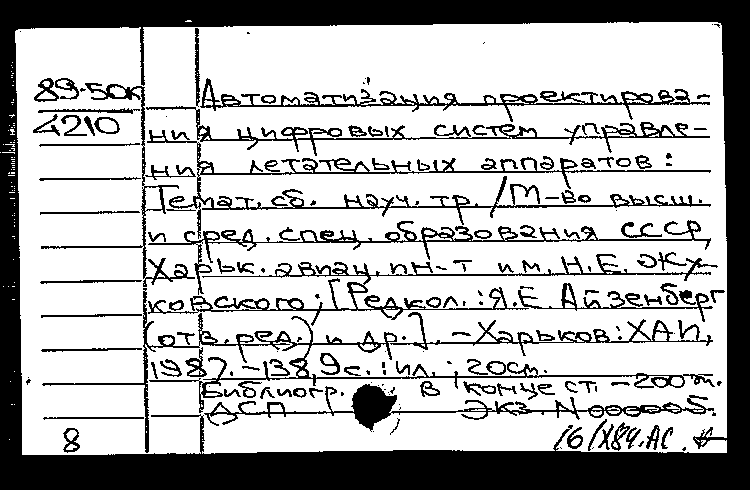 89-50к Автоматизация проектирова-
4210 ния цифровых систем управле-
ния летательных аппаратов:
Темат. сб. науч. тр. / М-во высш.
и сред. спец. образования СССР,
Харьк. авиац. ин-т им. Н.Е. Жу-
ковского; [Редкол.: Я.Е Айзенберг
(отв. ред.) и др.]. - Харьков: ХАИ,
1987. - 138,9 с.: ил.; 20 см.
Библиогр. в конце ст. - 200 т.
ДСП ЭКЗ. N 000005.
8